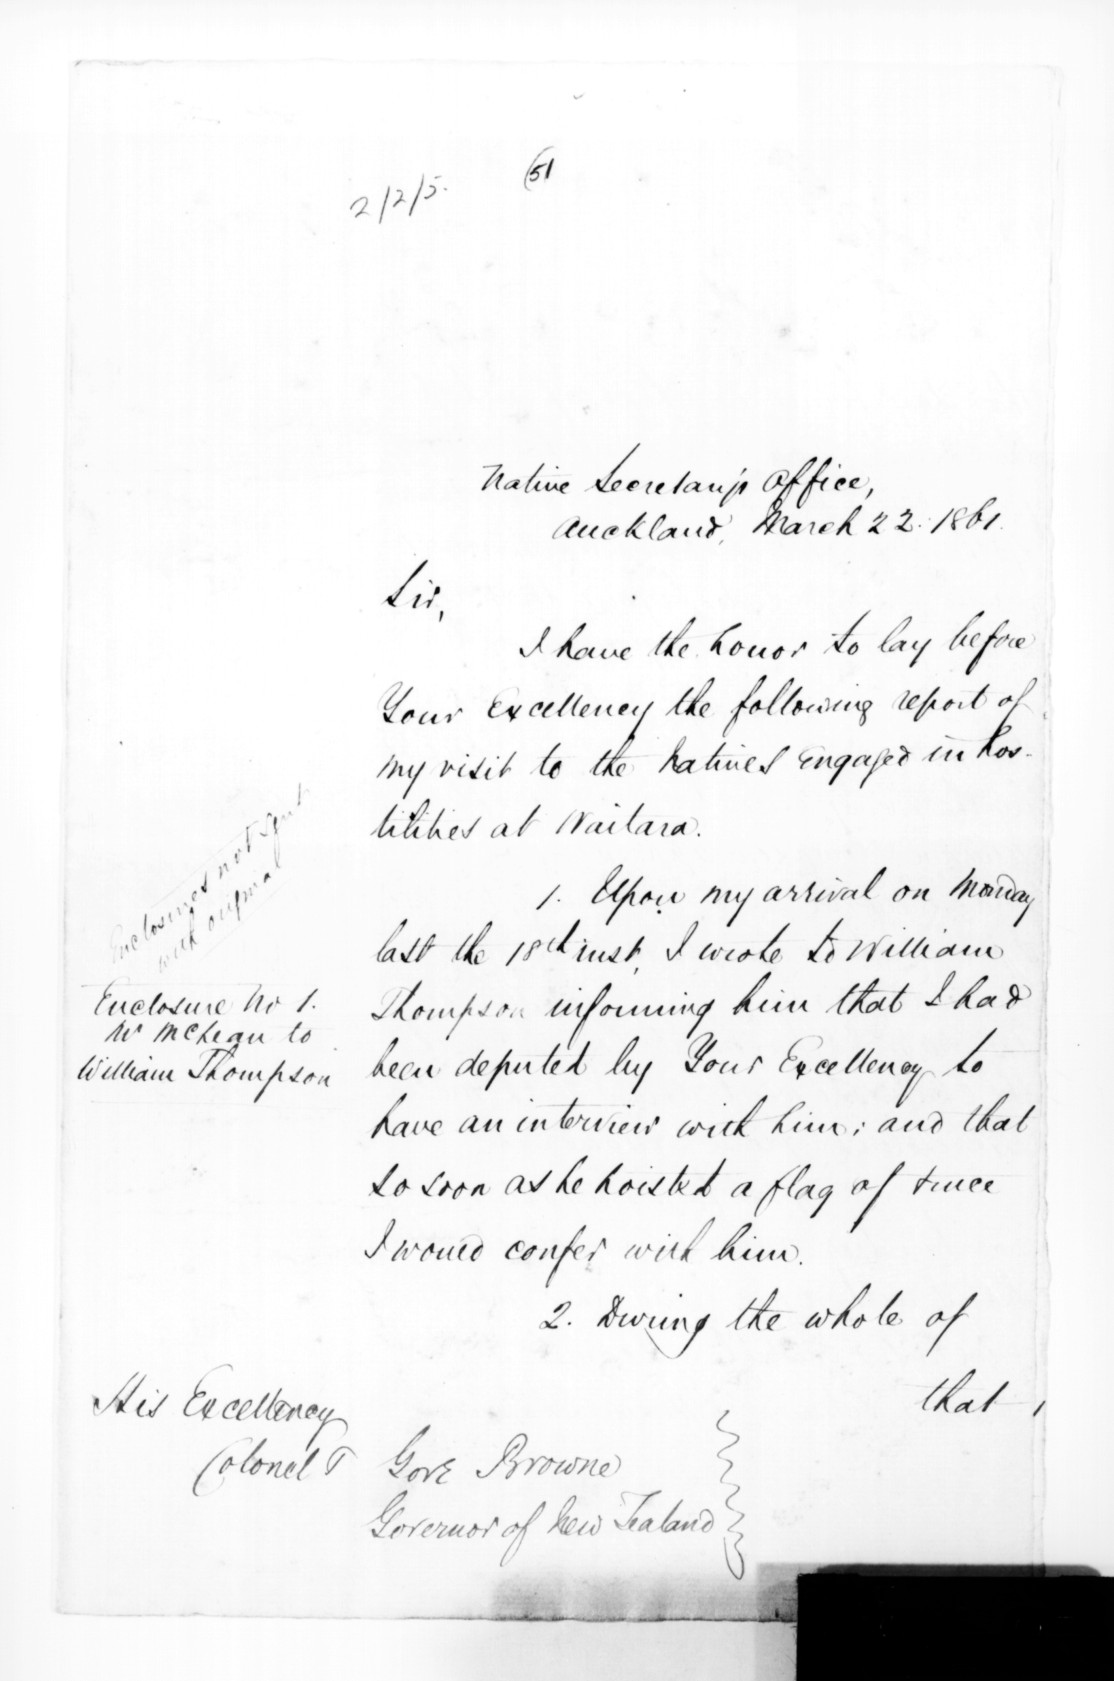 2/2/5.
(51
Native Secretary's Office,
Auckland, March 22. 1861.
Sir,
I have the honor to lay before
Your Excellency the following report of
my visit to the Natives engaged in hos-
tilities at Waitara.
1. Upon my arrival on Monday
last the 18th inst, I wrote to William
Thompson informing him that I had
been deputed by Your Excellency to
have an interview with him; and that
so soon as he hoisted a flag of truce
I would confer with him.
2. During the whole of
that
Enclosures not sent
with original
Enclosure No 1.
Mr McLean to
William Thompson
His Excellency
Colonel T Gore Browne
Governor of New Zealand